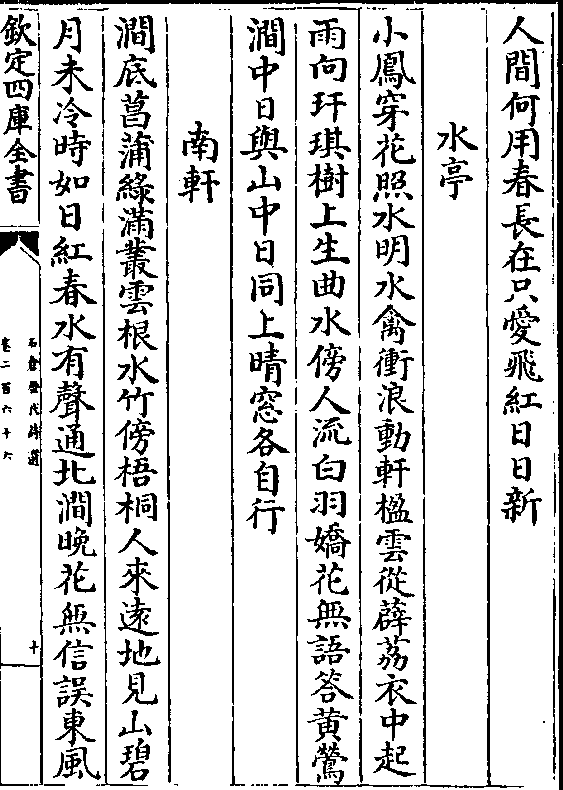 人間何用春長在只愛飛紅日日新
水亭
小鳳穿花照水明水禽衝浪動軒楹雲從薜荔衣中起
雨向玕琪樹上生曲水傍人流白羽嬌花無語答黄鶯
澗中日與山中日同上晴窓各自行
南軒
澗底菖蒲綠滿叢雲根水竹傍梧桐人來遠地見山碧
月未冷時如日紅春水有聲通北澗晚花無信誤東風
欽定四庫全書
石倉歷代詩選
卷二百六十六
十